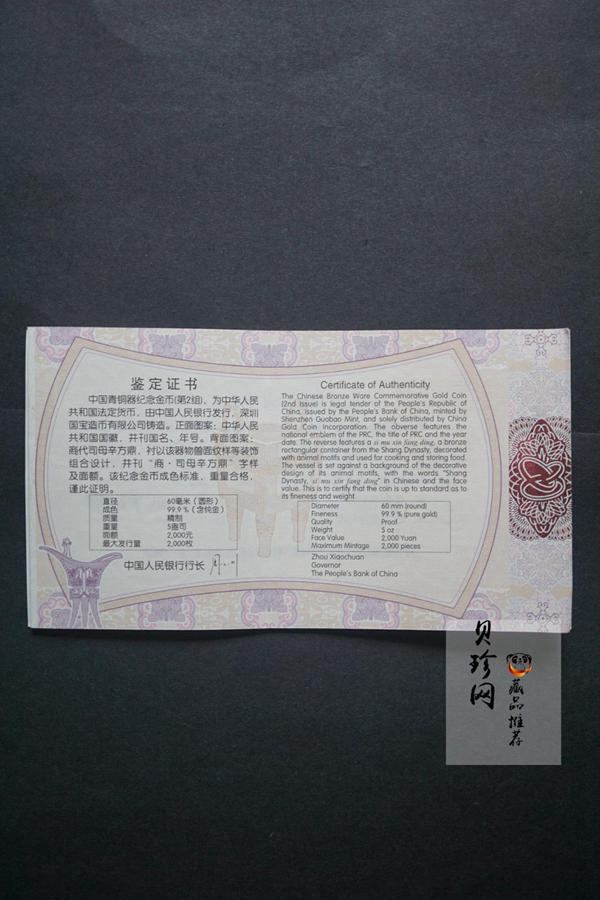 鉴定证书
中国青铜器纪念金币(第2组)，为中华人民
共和国法定货币，由中国人民银行发行，深圳
国宝造币有限公司铸造。正面图案：中华人民
共和国国徽，并刊国名、年号。背面图案：
商代司母辛方鼎，衬以该器物兽面纹样等装饰
组合设计，并刊“商·司母辛方鼎”字样
及面额。该纪念金币成色标准，重量合格，
谨此证明。
直径 60毫米（圆形）
成色 99.9％（含纯金）
质量 精制
重量 5盎司
面额 2,000元
最大发行量 2,000枚
中国人民银行行长
Certificate of Authenticity
The Chinese Bronze Ware Commemorative Gold Coin
(2nd Issue) is legal tender of the People's Republic of
China, issued by the People's Bank of China, minted by
Shenzhen Guobao Mint, and solely distributed by China
Gold Coin Incorporation. The obverse features the
national emblem of the PRC, the title of PRC and the year
date. The reverse features a si mu xin fang ding, a bronze
rectangular container from the Shang Dynasty, decorated
with animal motifs and used for cooking and storing food.
The vessel is set against a background of the decorative
design of its animal motifs, with the words "Shang
Dynasty, si mu xin fang ding" in Chinese and the face
value. This is to certify that the coin is up to standard as to
its fineness and weight.
Diameter 60 mm (round)
Fineness 99.9 % (pure gold)
Quality Proof
Weight 5 oz
Face Value 2,000 Yuan
Maximum Mintage 2,000 pieces
Zhou Xiaochuan
Governor
The People's Bank of China
贝珍网
藏品推荐